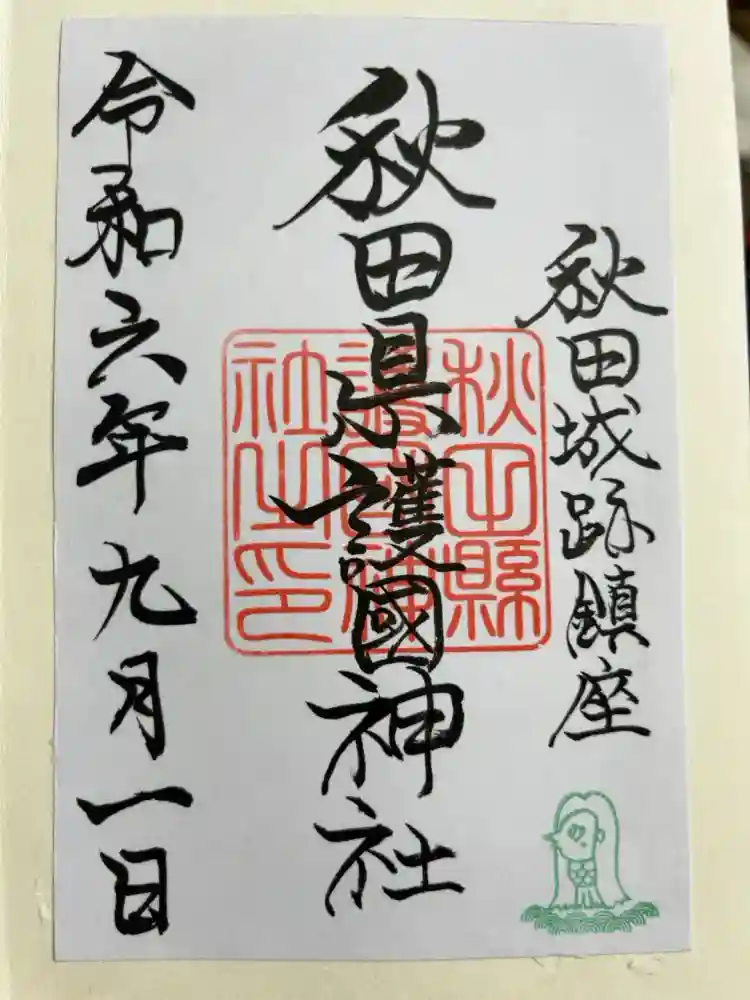 秋田城跡鎮座
秋田県護國神社
秋田縣
護國神
社之印
令和六年九月一日